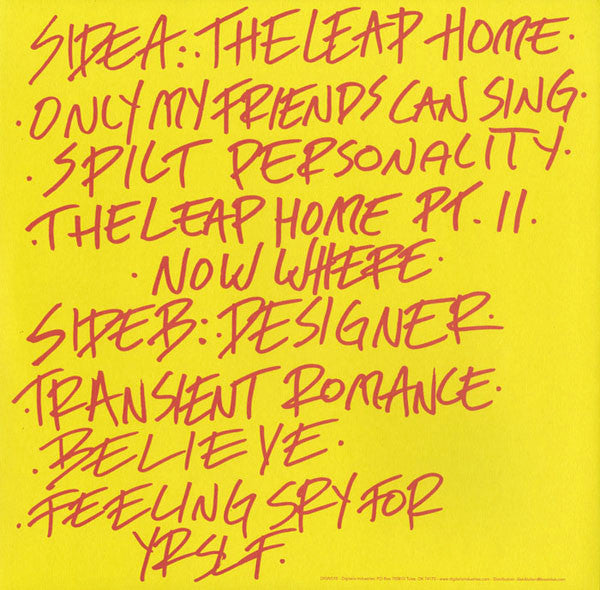 SIDEA:·THE LEAP HOME·
·ONLY MY FRIENDS CAN SING·
·SPILT PERSONALITY·
·THE LEAP HOME PT. II·
·NOW WHERE·
SIDEB:·DESIGNER·
·TRANSIENT ROMANCE·
·BELIEVE·
·FEELING SRY FOR
YRSLF·